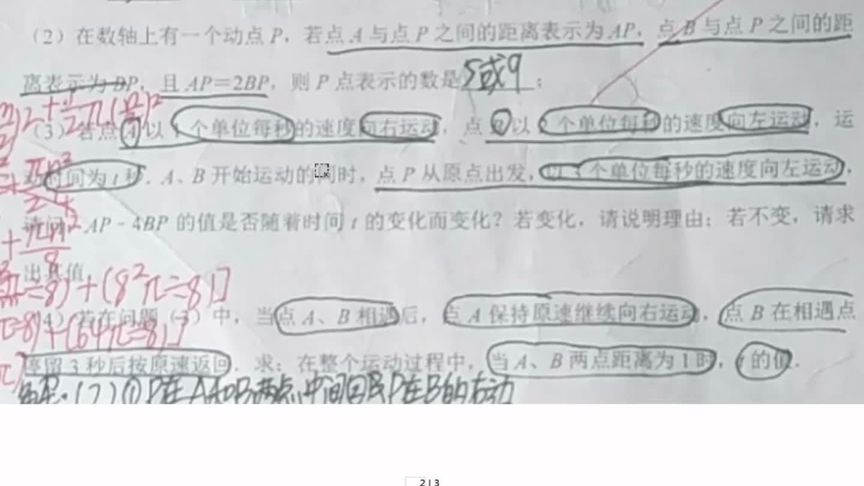 （2）在数轴上有一个动点 P，若点 A 与点 P 之间的距离表示为 AP，点 B 与点 P 之间的距
离表示为 BP，且 AP=2BP，则 P 点表示的数是 5或9；
（3）若点 A 以 1 个单位每秒的速度向右运动，点 B 以 2 个单位每秒的速度向左运动，运
动时间为 t 秒．A、B 开始运动的同时，点 P 从原点出发，以 3 个单位每秒的速度向左运动，
请问：AP－4BP 的值是否随着时间 t 的变化而变化？若变化，请说明理由；若不变，请求
出其值
（4）若在问题（3）中，当点 A、B 相遇后，点 A 保持原速继续向右运动，点 B 在相遇点
停留 3 秒后按原速返回．求：在整个运动过程中，当 A、B 两点距离为 1 时，t 的值．
(2)①P在A和B两点中间②P在B的右边
2 | 3